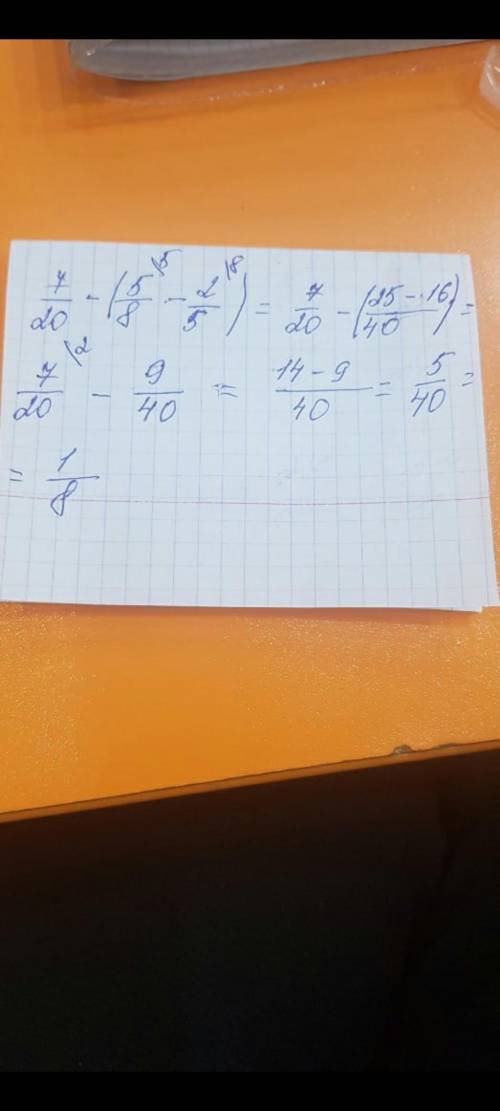 7/20 - (5/8 \5 - 2/5 \8) = 7/20 - (25-16/40) =
7/20 \2 - 9/40 = 14-9/40 = 5/40 =
= 1/8